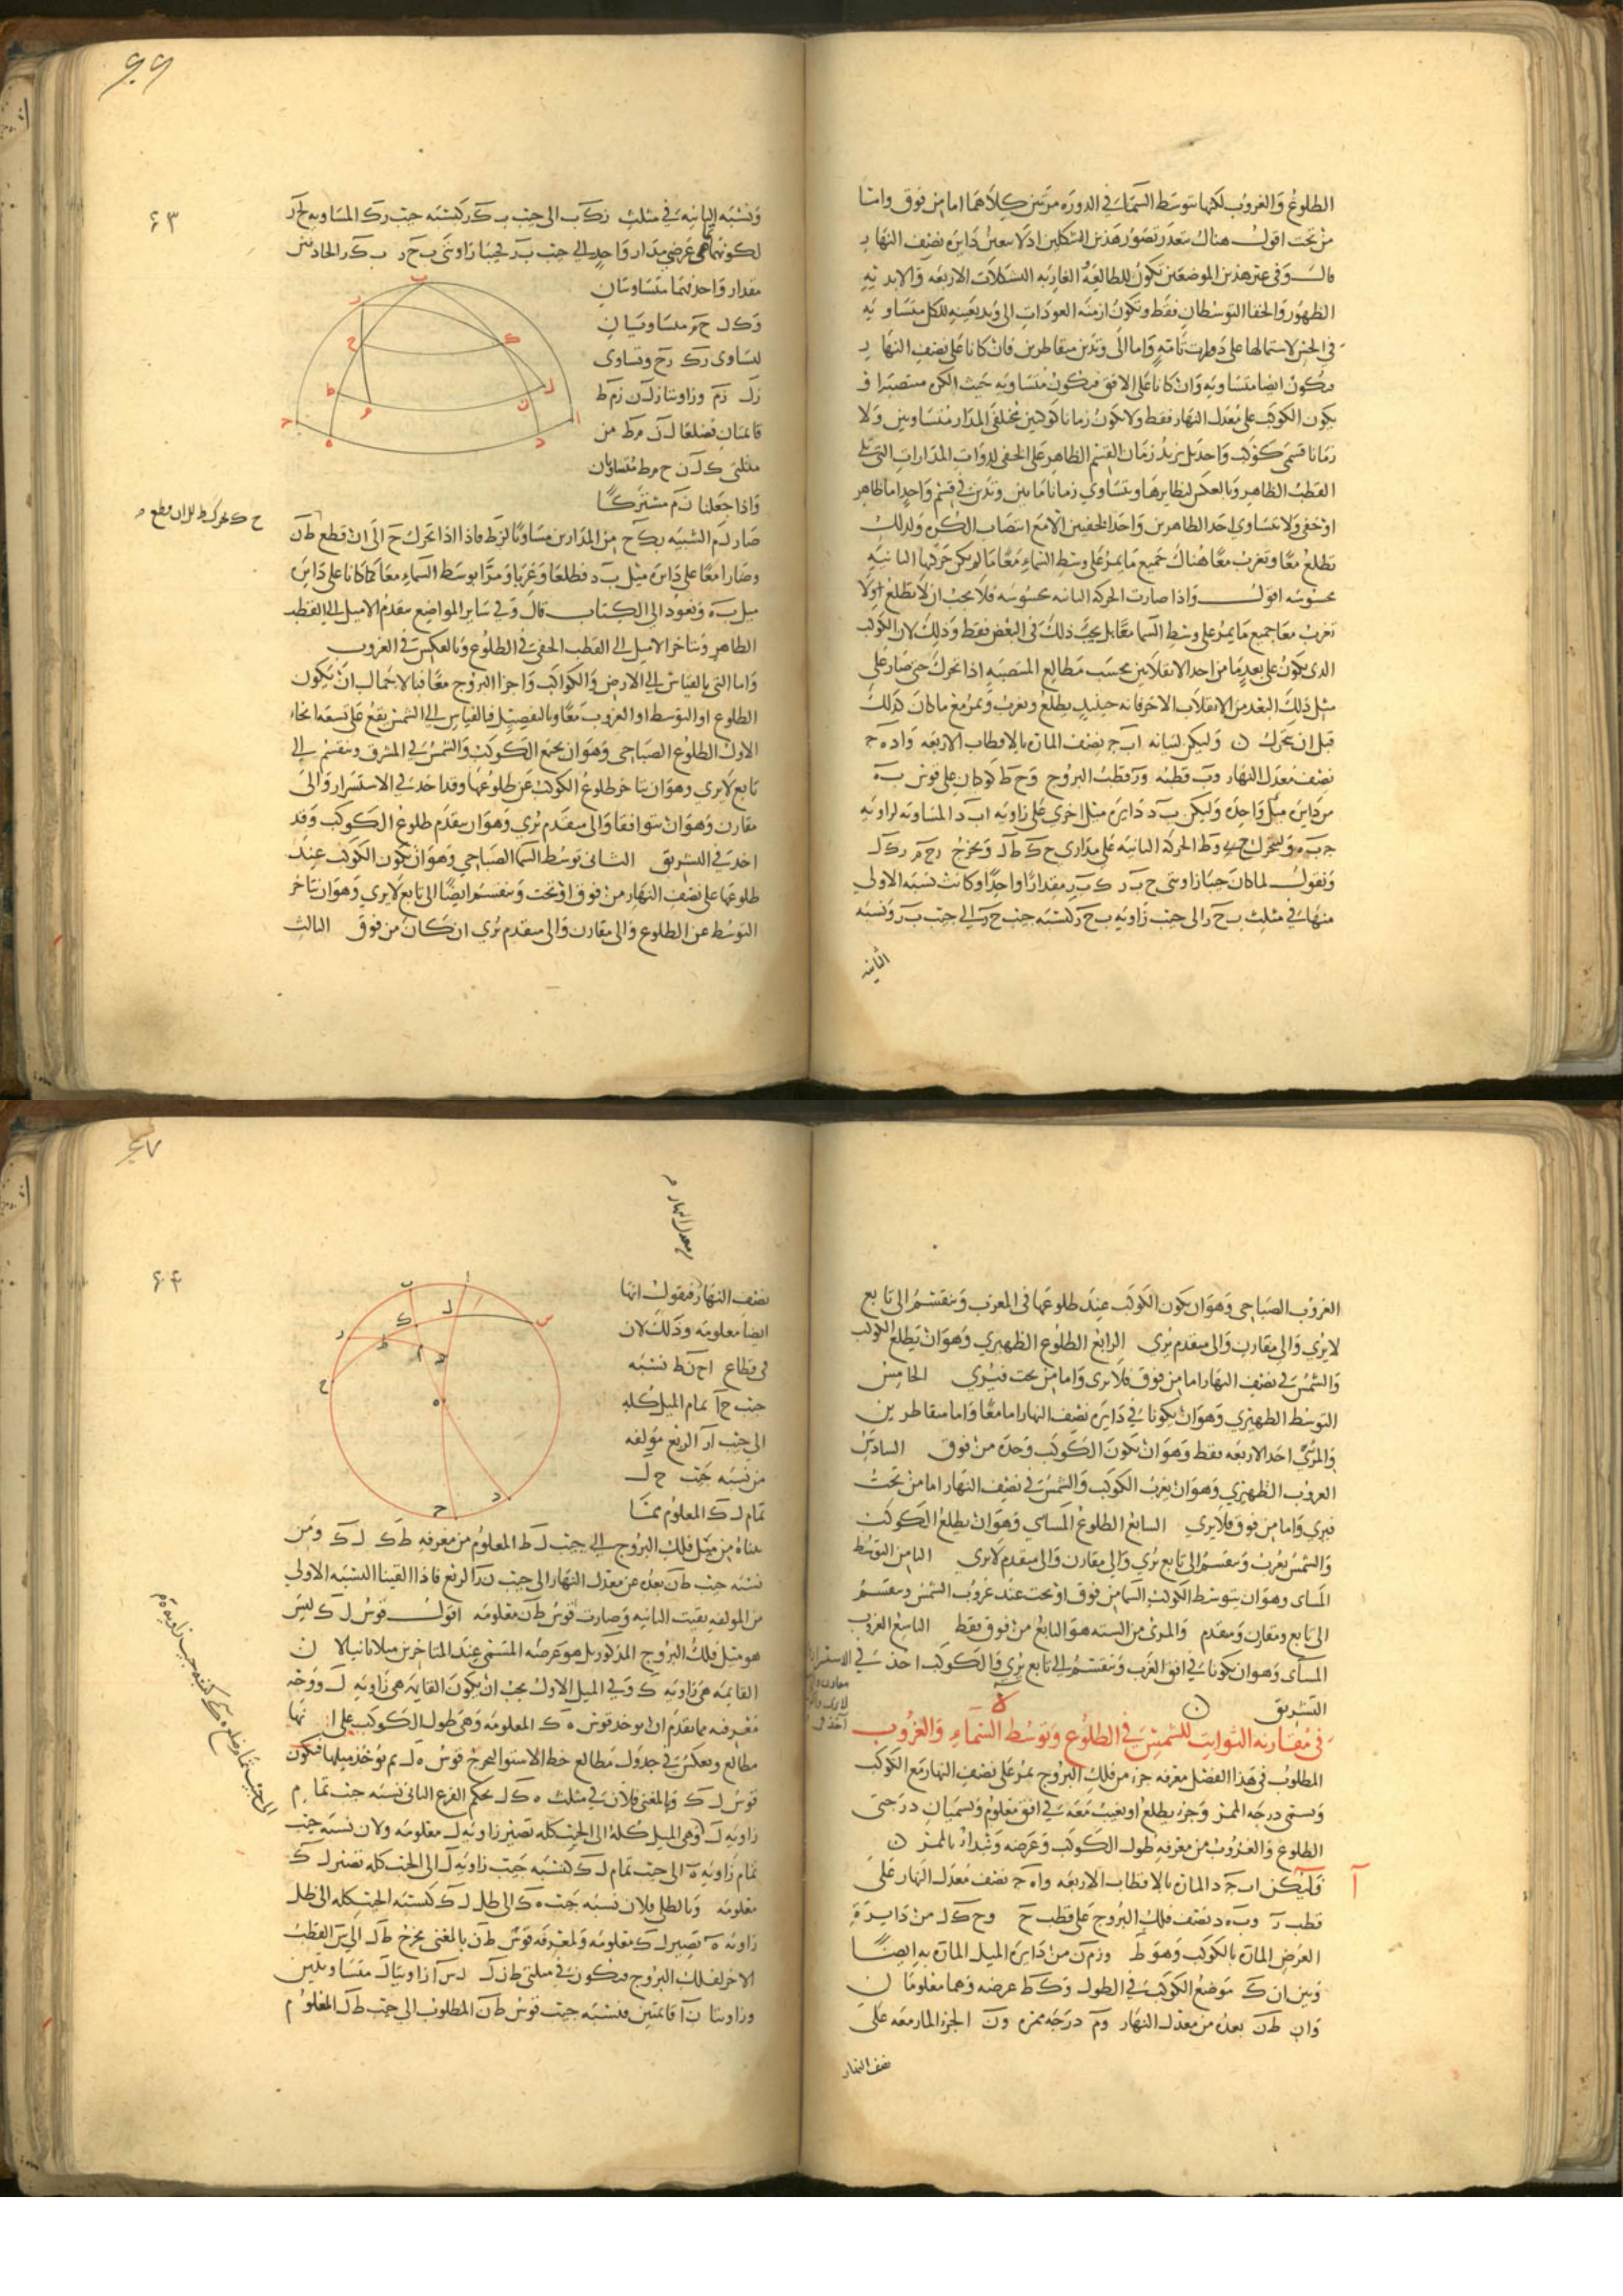 الطلوع والغروب لكنها تتوسط السماء في الدورة مرتين كلاهما اما من فوق واما
من تحت اقول هناك يتعذر تصور هذين الشكلين اذ لا يتعين دايرة نصف النهار
قال وفي غير هذين الموضعين تكون للطالعة الغاربة التشكلات الاربعة والابدية
الظهور والخفا التوسطان فقط وتكون ازمنة العودات الى وتد بعينه للكل متساوية
في الحس لاشتمالها على دورات تامة واما الى وتدين متقاطرين فان كانا على نصف النهار
فتكون ايضا متساوية وان كانا على الافق فتكون متساوية حيث الكرة منتصبة او
يكون الكوكب على معدل النهار فقط ولا تكون زمانا كوكبين مختلفي المدار متساويين ولا
زمانا قسمي كوكب واحد بل يزيد زمان القسم الظاهر على الخفي لذوات المدارات التي تلي
القطب الظاهر وبالعكس لنظايرها ويتساوي زمانا ما بين وتدين في قسم واحد اما ظاهر
او خفي ولا يتساوى احد الظاهرين واحد الخفيين الا مع انتصاب الكرة ولذلك
يطلع معا وتغرب معا هناك جميع ما يمر على وسط السماء معا ما لم يكن حركتها الثانية
محسوسة اقول واذا صارت الحركة الثانية محسوسة فلا يجب ان لا يطلع اولا
تغرب معا جميع ما يمر على وسط السما معا بل يجب ذلك في البعض فقط وذلك لان الكوكب
الذي يكون على بعد ما من احد الانقلابين بحسب مطالع المنتصبة اذا تحرك حتى صار على
مثل ذلك البعد من الانقلاب الاخر فانه حينيذ يطلع ويغرب ويمر مع ما كان كذلك
قبل ان يتحرك وليكن لبيانه اب ج نصف المارة بالاقطاب الاربعة واد ه ج
نصف معدل النهار وب قطبه ور قطب البروج وح ط كوكبان على قوس ب ه
من دايرة ميل واحدة وليكن ب د دايرة ميل اخرى على زاوية اب د المساوية لزاوية
ج ب ه وليتحرك ح وط الحركة الثانية على مداري ح ك ط ل ونخرج رح م رك ل
ونقول لما كان جيبا زاويتي ح ب ر ك ب ر مقدارا واحدا وكانت نسبة الاولى
منها في مثلث ب ح ر الى جيب زاوية ب ح ر كنسبة جيب ح ر الى جيب ب ر ونسبة
الثانية
٦٦
٦٣
ونسبة الثانية في مثلث رك ب الى جيب ب ك ر كنسبة جيب رك المساوية لح ر
لكونهما عرضي مدار واحد الى جيب ب ر فجيبا زاويتي ب ح ر ب ك ر الحادتين
مقدار واحد فهما متساويتان
وك ل ح م متساويان
لتساوى رك رح وتساوى
رل رم وزاويتا رل ن رم ط
قايمتان فضلعا ل ن م ط من
مثلثي ك ل ن ح م ط متساويان
واذا جعلنا ن م مشتركا
صار ل م الشبيه بك ح من المدارين مساويا لن ط فاذا اذا تحرك ح الى ان قطع ط ن
وصارا معا على دايرة ميل ب د فطلعا وغربا ومرا بوسط السماء معا كما كانا على دايرة
ميل ب ه ونعود الى الكتاب قال وفي ساير المواضع يتقدم الاميل الى القطب
الظاهر ويتاخر الاميل الى القطب الخفي في الطلوع وبالعكس في الغروب
واما التي بالقياس الى الارض والكواكب واجزا البروج معا فبالاجمال ان يكون
الطلوع او التوسط او الغروب معا وبالتفصيل فبالقياس الى الشمس يقع على تسعة انحاء
الاول الطلوع الصباحي وهو ان يجتمع الكوكب والشمس في المشرق وينقسم الى
تابع لا يري وهو ان يتاخر طلوع الكوكب عن طلوعها وقد اخذ في الاستسرار والى
مقارن وهو ان يتوافقا والى متقدم يري وهو ان يتقدم طلوع الكوكب وقد
اخذ في التشريق الثاني توسط السما الصباحي وهو ان يكون الكوكب عند
طلوعها على نصف النهار من فوق او تحت وينقسم ايضا الى تابع لا يري وهو ان يتاخر
التوسط عن الطلوع والى مقارن والى متقدم يري ان كان من فوق الثالث
الغروب الصباحي وهو ان يكون الكوكب عند طلوعها في المغرب وينقسم الى تابع
لا يري والى مقارن والى متقدم يري الرابع الطلوع الظهيري وهو ان يطلع الكوكب
والشمس في نصف النهار اما من فوق فلا يرى واما من تحت فيري الخامس
التوسط الظهيري وهو ان يكونا في دايرة نصف النهار اما معا واما متقاطرين
والمرئي احد الاربعة فقط وهو ان يكون الكوكب وحده من فوق السادس
الغروب الظهيري وهو ان يغرب الكوكب والشمس في نصف النهار اما من تحت
فيرى واما من فوق فلا يري السابع الطلوع المسايي وهو ان يطلع الكوكب
والشمس تغرب وينقسم الى تابع يري والى مقارن والى متقدم لا يرى الثامن التوسط
المساى وهو ان يتوسط الكوكب السما من فوق او تحت عند غروب الشمس وينقسم
الى تابع ومقارن ومتقدم والمرئ من الستة هو التابع من فوق فقط التاسع الغروب
المسآى وهو ان يكونا في افق الغرب وينقسم الى تابع يري والكوكب اخذ في الاستسرار
التشريق
في مقارنة الثوابت للشمس في الطلوع وتوسط السماء والغروب
المطلوب في هذا الفصل معرفة جزء من فلك البروج يمر على نصف النهار مع الكوكب
ويسمى درجة الممر وجزء يطلع او يغيب معه في افق معلوم ويسميان درجتى
الطلوع والغروب من معرفة طول الكوكب وعرضه ونبدا بالممر
آ
فليكن اب ج د المارة بالاقطاب الاربعة واه ج نصف معدل النهار على
قطب ر وب ه د نصف فلك البروج على قطب ح وح ك ل من دايرة
العرض المارة بالكوكب وهو ط ورم ن من دايرة الميل المارة به ايضا
وبين ان ك موضع الكوكب في الطول وك ط عرضه وهما معلومان
وان ط ن بعده من معدل النهار وم درجة ممره ون الجزء المار معه على
نصف النهار
٦٧
٦٤
معدل النهار
نصف النهار فيقول انها
ايضا معلومة وذلك لان
في قطاع اح ن ط نسبة
جيب ح آ تمام الميل كله
الى جيب آر الربع مؤلفة
من نسبة جيب ح ل
تمام ل ك المعلوم مما
بيناه من ميل فلك البروج الى جيب ل ط المعلوم من معرفة ط ك ل ك ومن
نسبة جيب ط ن بعده عن معدل النهار الى جيب ن ر الربع فاذا القينا النسبة الاولى
من المولفة بقيت الثانية وصارت قوس ط ن معلومة اقول قوس ل ك ليس
هو ميل فلك البروج المذكور بل هو عرضه المسمى عند المتاخرين ميلا ثانيا لان
القايمة هي زاوية ك وفي الميل الاول يجب ان يكون القايمة هي زاوية ل ووجه
معرفته مما تقدم ان يوخذ قوس ه ك المعلومة وهي طول الكوكب على انها
مطالع وبعكس في جدول مطالع خط الاستوا ليخرج قوس ه ل ثم يوخذ ميلها فيكون
قوس ل ك وبالمغني فلان في مثلث ه ك ل بحكم الفرع الثاني نسبة جيب تمام
زاوية ل وهي الميل كله الى الجيب كله تصير زاوية ل معلومة ولان نسبة جيب
تمام زاوية ه الى جيب تمام ل ك كنسبة جيب زاوية ل الى الجيب كله تصير ل ك
معلومة وبالظلي فلان نسبة جيب ه ك الى ظل ل ك كنسبة الجيب كله الى ظل
زاوية ه تصير ل ك معلومة ولمعرفة قوس ط ن بالمغني نخرج ط ل الى س القطب
الاخر لفلك البروج فيكون في مثلثي ط ن ل ل س آ زاويتا ل متساويتين
وزاويتا ن آ قايمتين فنسبة جيب قوس ط ن المطلوب الى جيب ط ل المعلوم